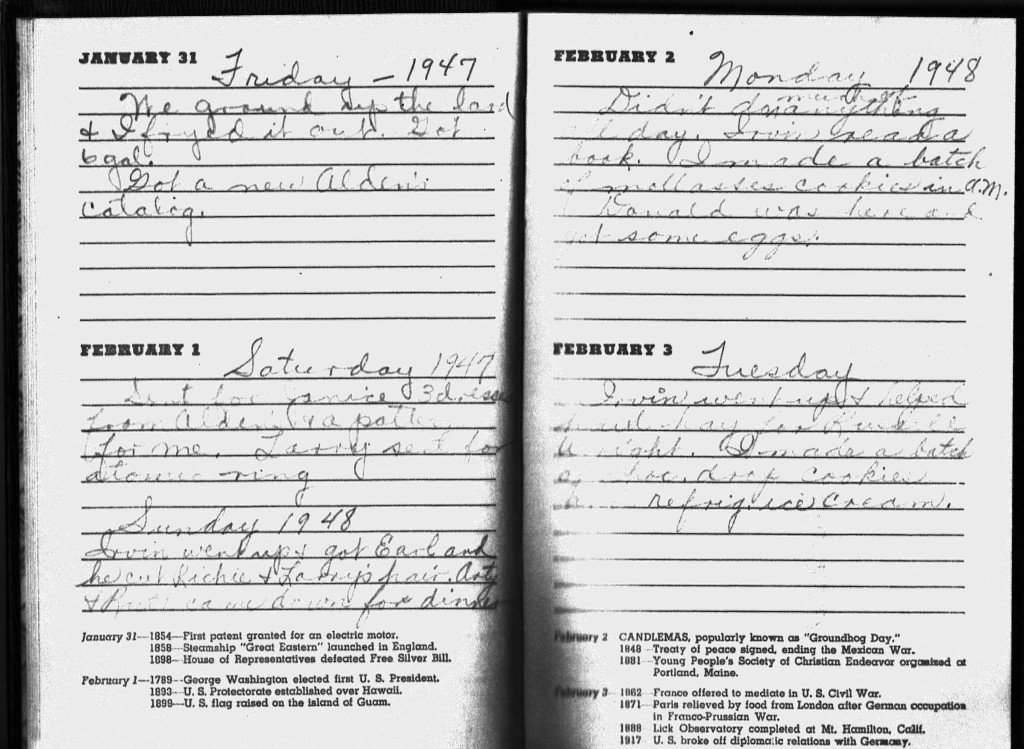 JANUARY 31 Friday - 1947
We ground up the lard
& I fryed it out. Got
6 gal.
Got a new Alden's
catalog.
FEBRUARY 1 Saturday 1947
Sent for Janice 3 dress
from Alden's & a patter
for me. Larry sent for
atomic ring
Sunday 1948
Irvin went up & got Earl and
he cut Richie & Larry's hair. Arty
& Ruth came down for dinner
January 31—1854—First patent granted for an electric motor.
1858—Steamship "Great Eastern" launched in England.
1898—House of Representatives defeated Free Silver Bill.
February 1—1789—George Washington elected first U. S. President.
1893—U. S. Protectorate established over Hawaii.
1899—U. S. flag raised on the island of Guam.
FEBRUARY 2 Monday 1948
much of
Didn't do anything
day. Irvin read a
book. I made a batch
of mollasses cookies in A.M.
Donald was here and
got some eggs.
FEBRUARY 3 Tuesday
Irvin went up & helped
hay for
night. I made a batch
choc. drop cookies
refrig. ice cream.
February 2 CANDLEMAS, popularly known as "Groundhog Day."
1848—Treaty of peace signed, ending the Mexican War.
1881—Young People's Society of Christian Endeavor organized at
Portland, Maine.
February 3—1862—France offered to mediate in U. S. Civil War.
1871—Paris relieved by food from London after German occupation
in Franco-Prussian War.
1888 Lick Observatory completed at Mt. Hamilton, Calif.
1917 U. S. broke off diplomatic relations with Germany.